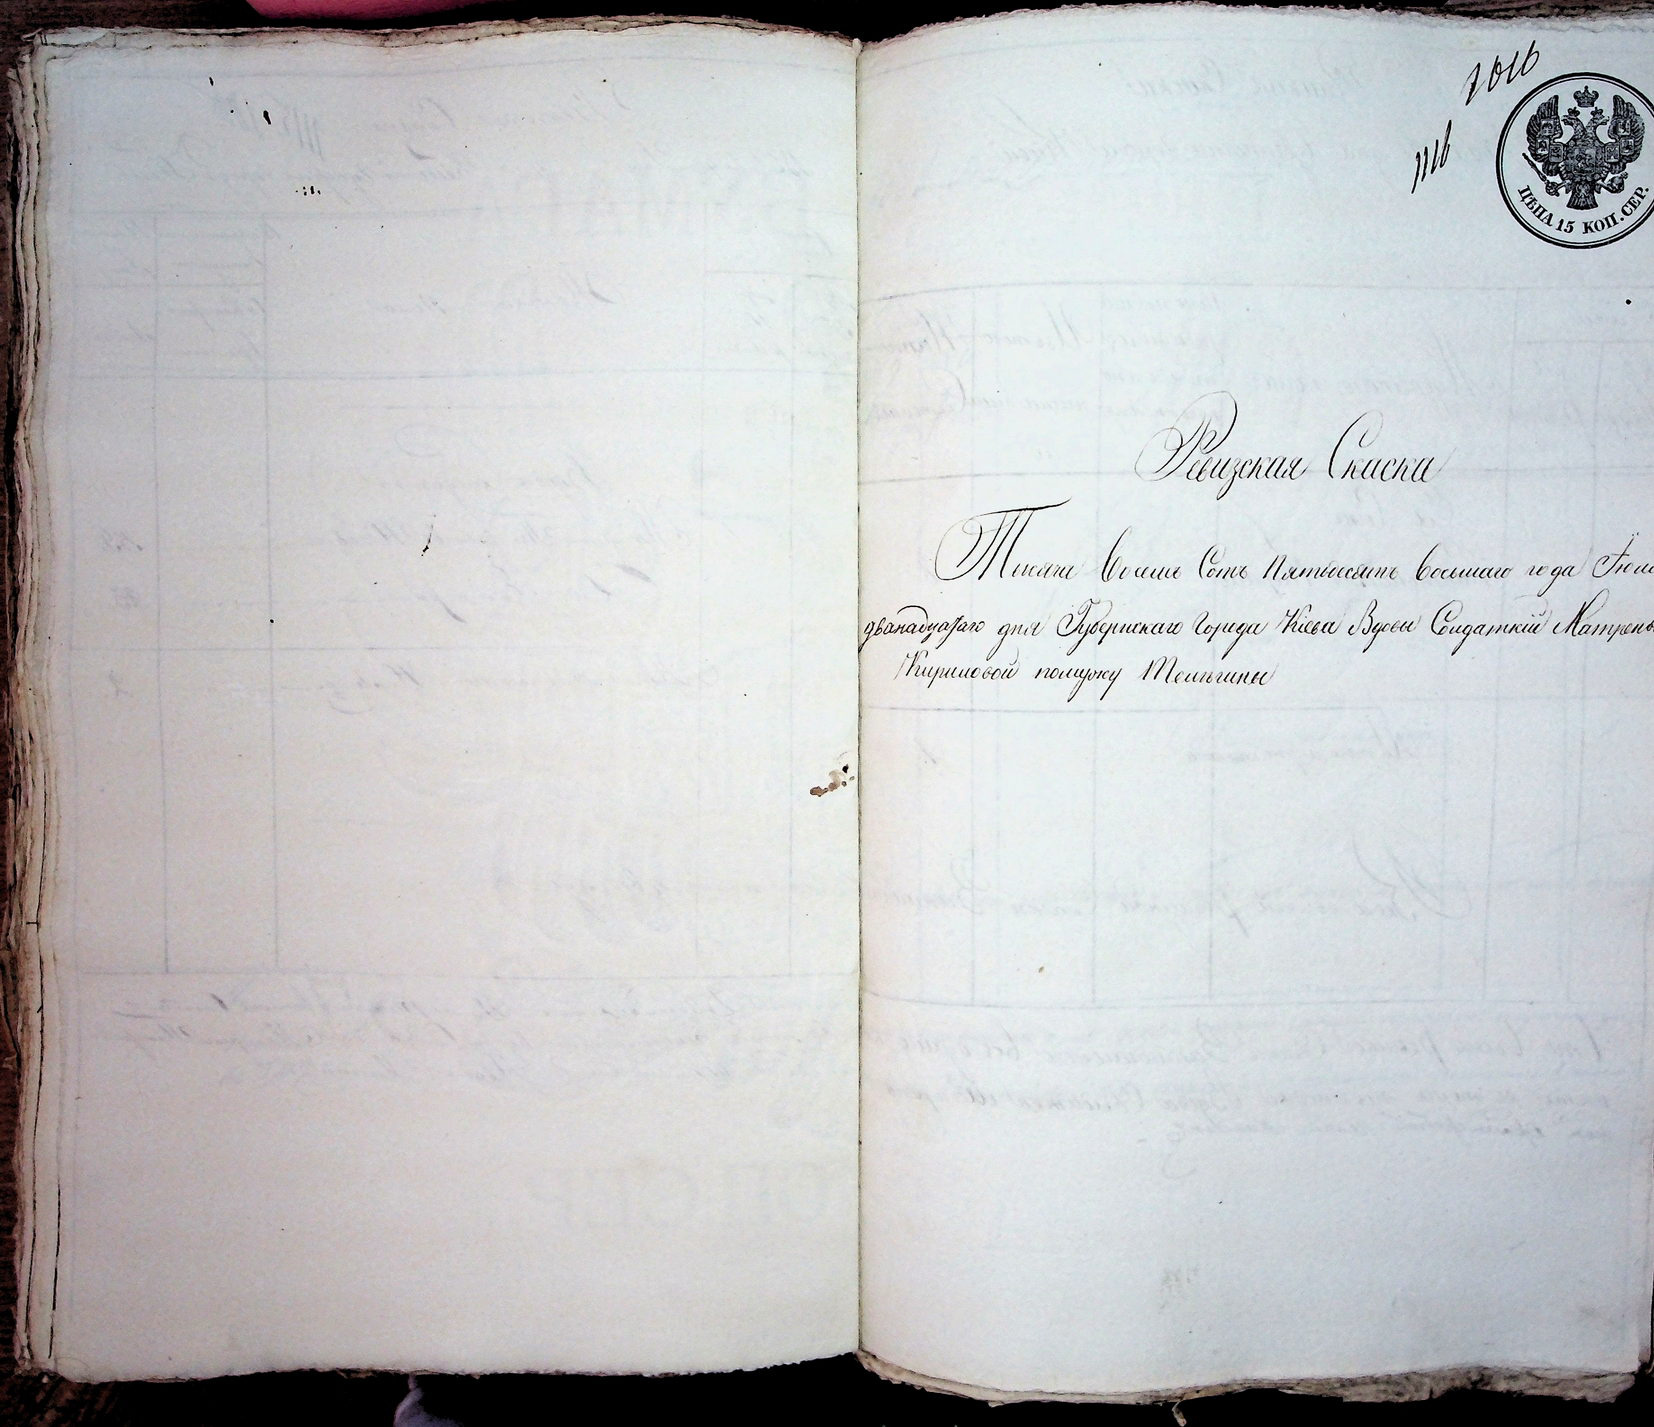 1016
1116
ЦѢНА 15 КОП. СЕР.
Ревизская Скаска
Тысяча Восемь Сотъ Пятьдесятъ Восьмаго года Іюня
двенадцатаго дня Губернскаго Города Кіева Вдовы Солдаткій Матрены
Кириловой помужу